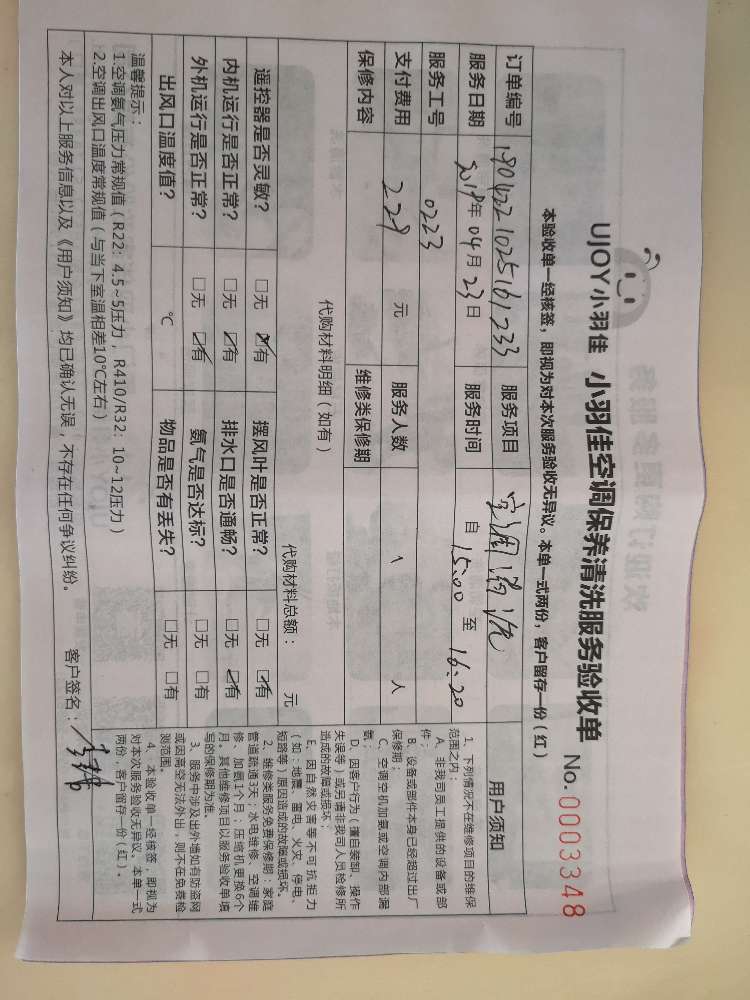 UJOY小羽佳 小羽佳空调保养清洗服务验收单 No. 0003348
本验收单一经核签，即视为对本次服务验收无异议。本单一式两份，客户留存一份（红）
订单编号 1804221025161233 服务项目 空调清洗
服务日期 2018年04月23日 服务时间 自 15:00 至 16:20
服务工号 0223
支付费用 229 元 服务人数 1 人
保修内容 维修类保修期
代购材料明细（如有） 代购材料总额： 元
遥控器是否灵敏？ □无 ☑有 摆风叶是否正常？ □无 ☑有
内机运行是否正常？ □无 ☑有 排水口是否通畅？ □无 ☑有
外机运行是否正常？ □无 ☑有 氨气是否达标？ □无 □有
出风口温度值？ ℃ 物品是否有丢失？ □无 □有
温馨提示：
1.空调氨气压力常规值（R22：4.5~5压力，R410/R32：10~12压力）
2.空调出风口温度常规值（与当下室温相差10℃左右）
本人对以上服务信息以及《用户须知》均已确认无误，不存在任何争议纠纷。 客户签名：
用户须知
1、下列情况不在维修项目的维保
范围之内：
A、非我司员工提供的设备或部
件；
B、设备或部件本身已经超过出厂
保修期；
C、空调空机加氨或空调内部漏
氨；
D、因客户行为（擅自装卸、操作
失误等）或另请非我司人员检修所
造成的故障或损坏；
E、因自然灾害等不可抗拒力
（如：地震、雷电、火灾、停电、
短路等）原因造成的故障或损坏。
2、维修类服务免费保修期：家庭
管道疏通3天；水电维修、空调维
修、加氨1个月；压缩机更换6个
月。其他维修项目以服务验收单填
写的保修期为准。
3、服务中涉及出外墙如有防盗网
或因高空无法外出，则不在免费检
测范围。
4、本验收单一经核签，即视为
对本次服务验收无异议。本单一式
两份，客户留存一份（红）。